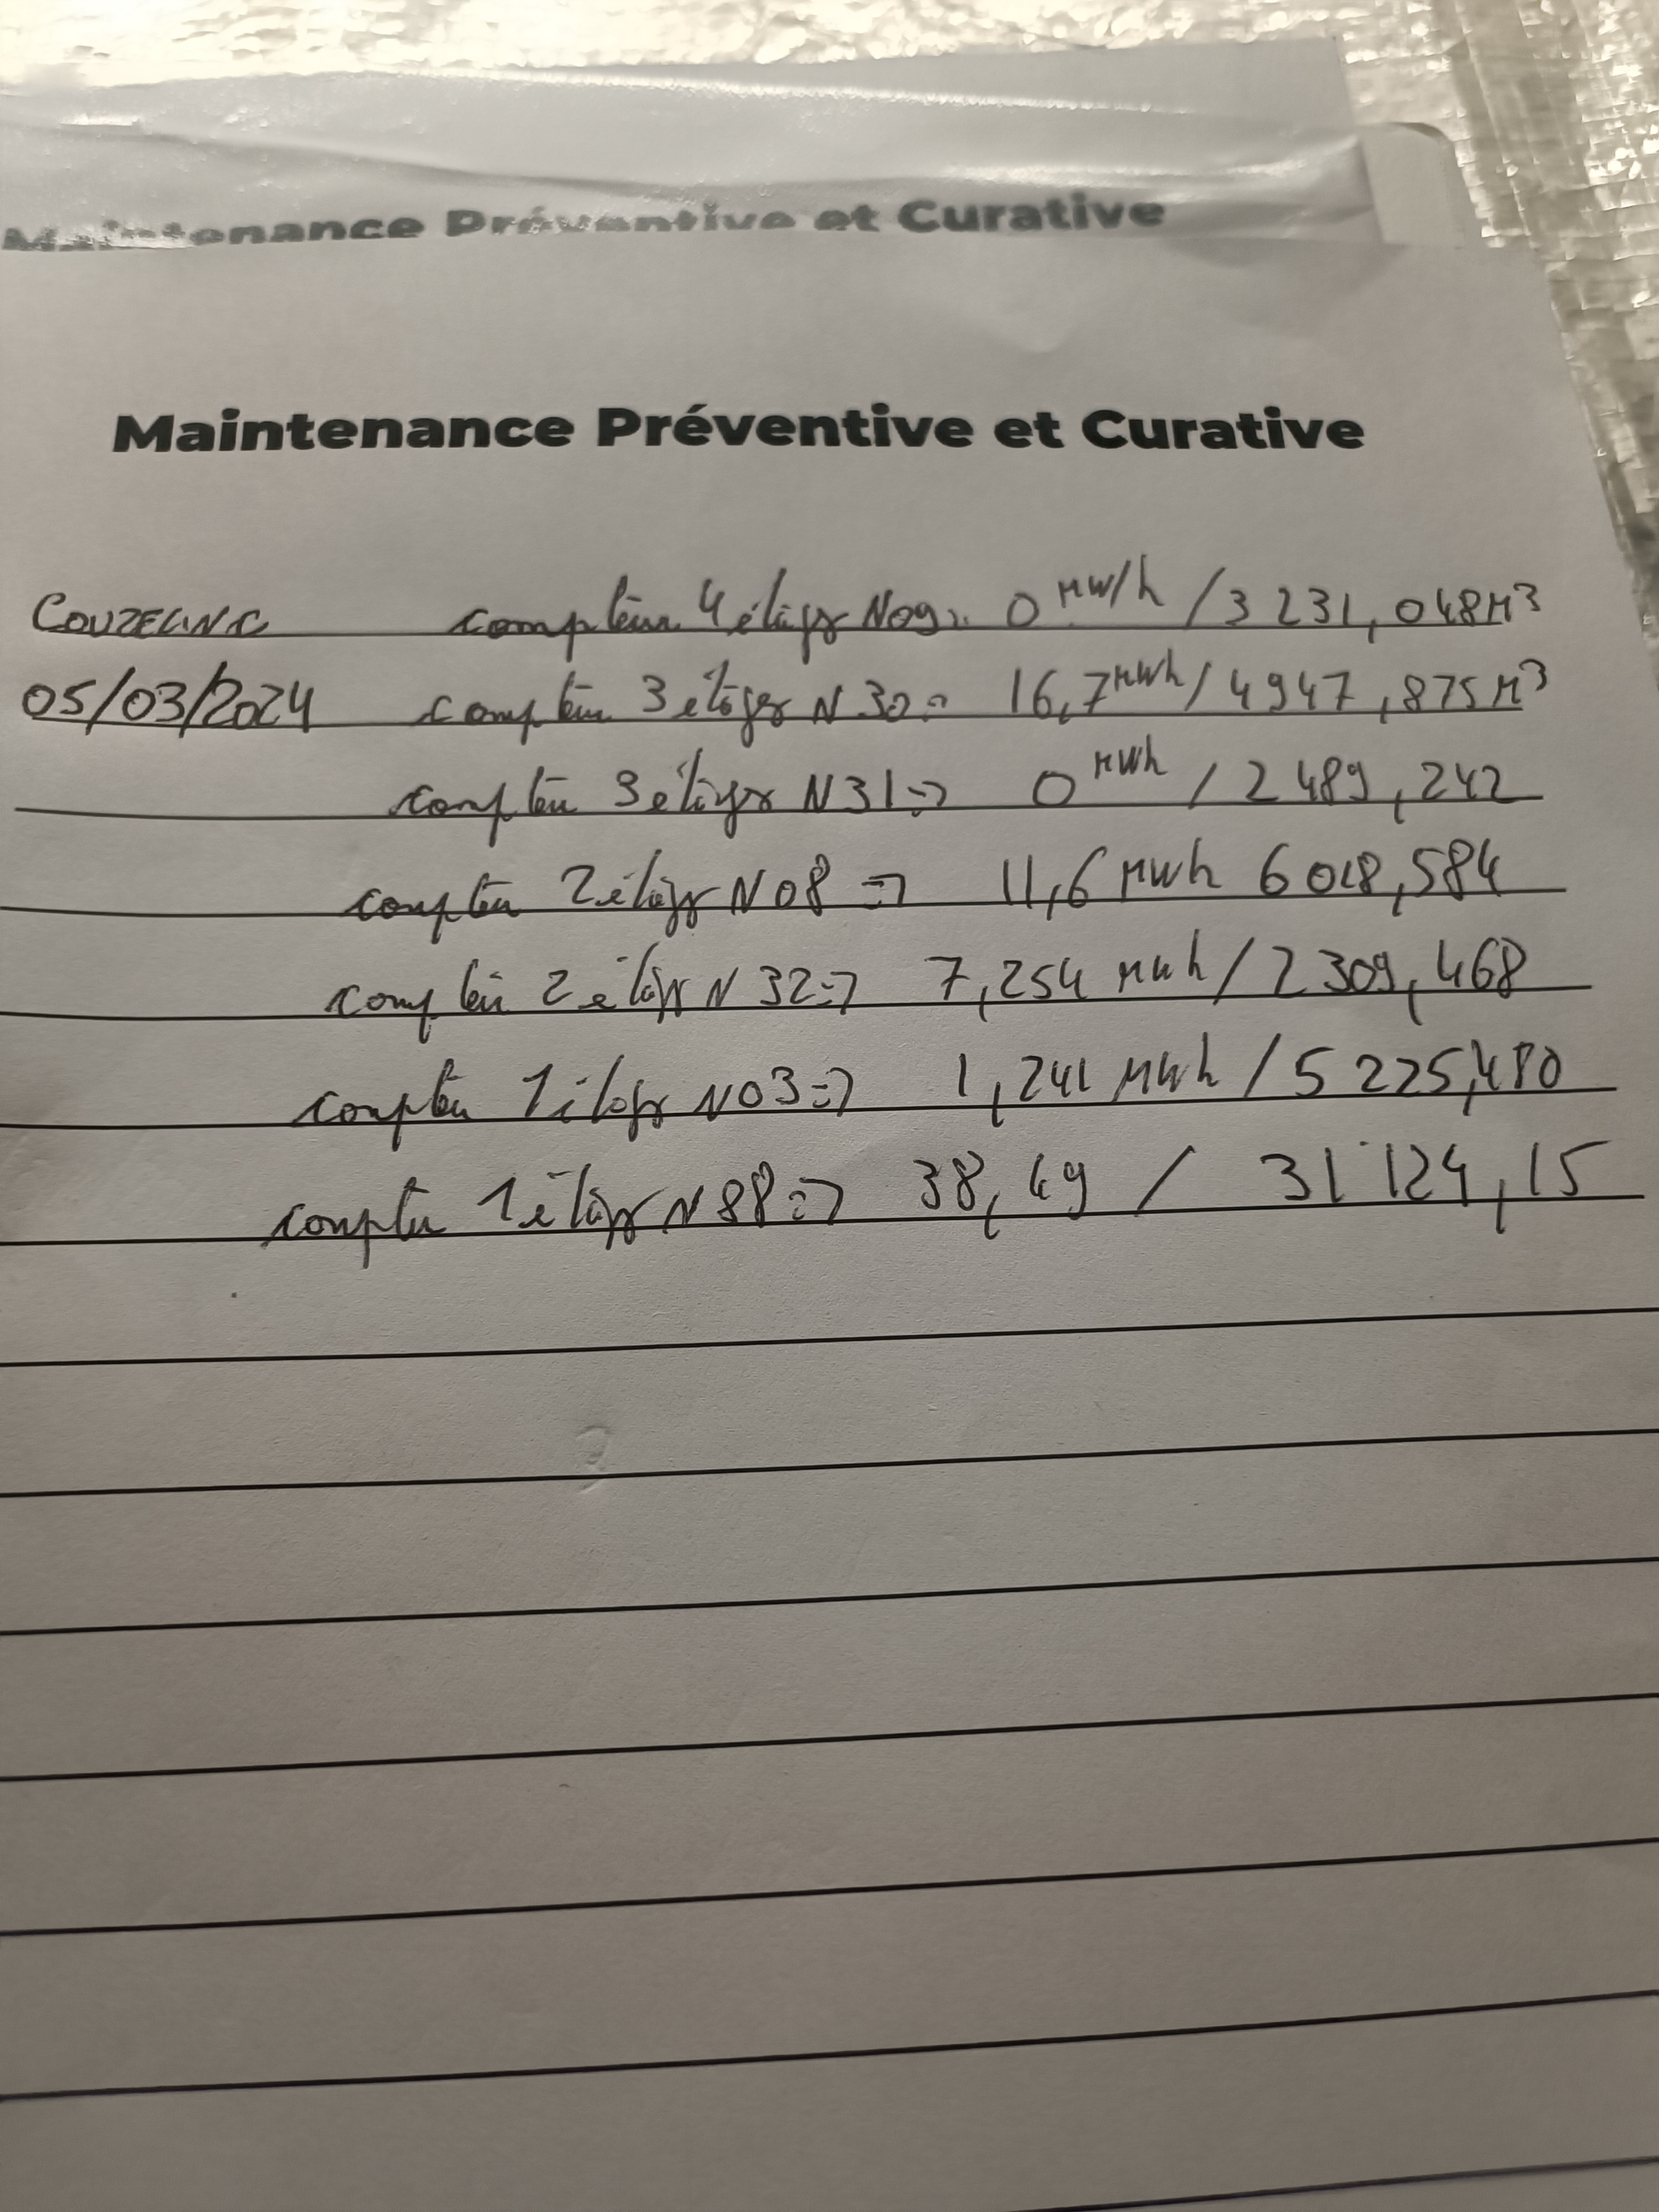 Maintenance Préventive et Curative
Maintenance Préventive et Curative
COUZELINC compteur 4 étages N09 = 0 MW/h / 3 231, 048 M³
05/03/2024 compteur 3 étages N 30 = 16,7 MWh / 4 947 ,875 M³
compteur 3 étages N31 => 0 MWh / 2 489, 242
compteur 2 étages N 08 => 11,6 MWh 6 018,584
compteur 2 étages N 32 => 7,254 MWh / 2 309, 468
compteur 1 étages N03 => 1,241 MWh / 5 225,480
compteur 1 étages N88 => 38,49 / 31 124, 15